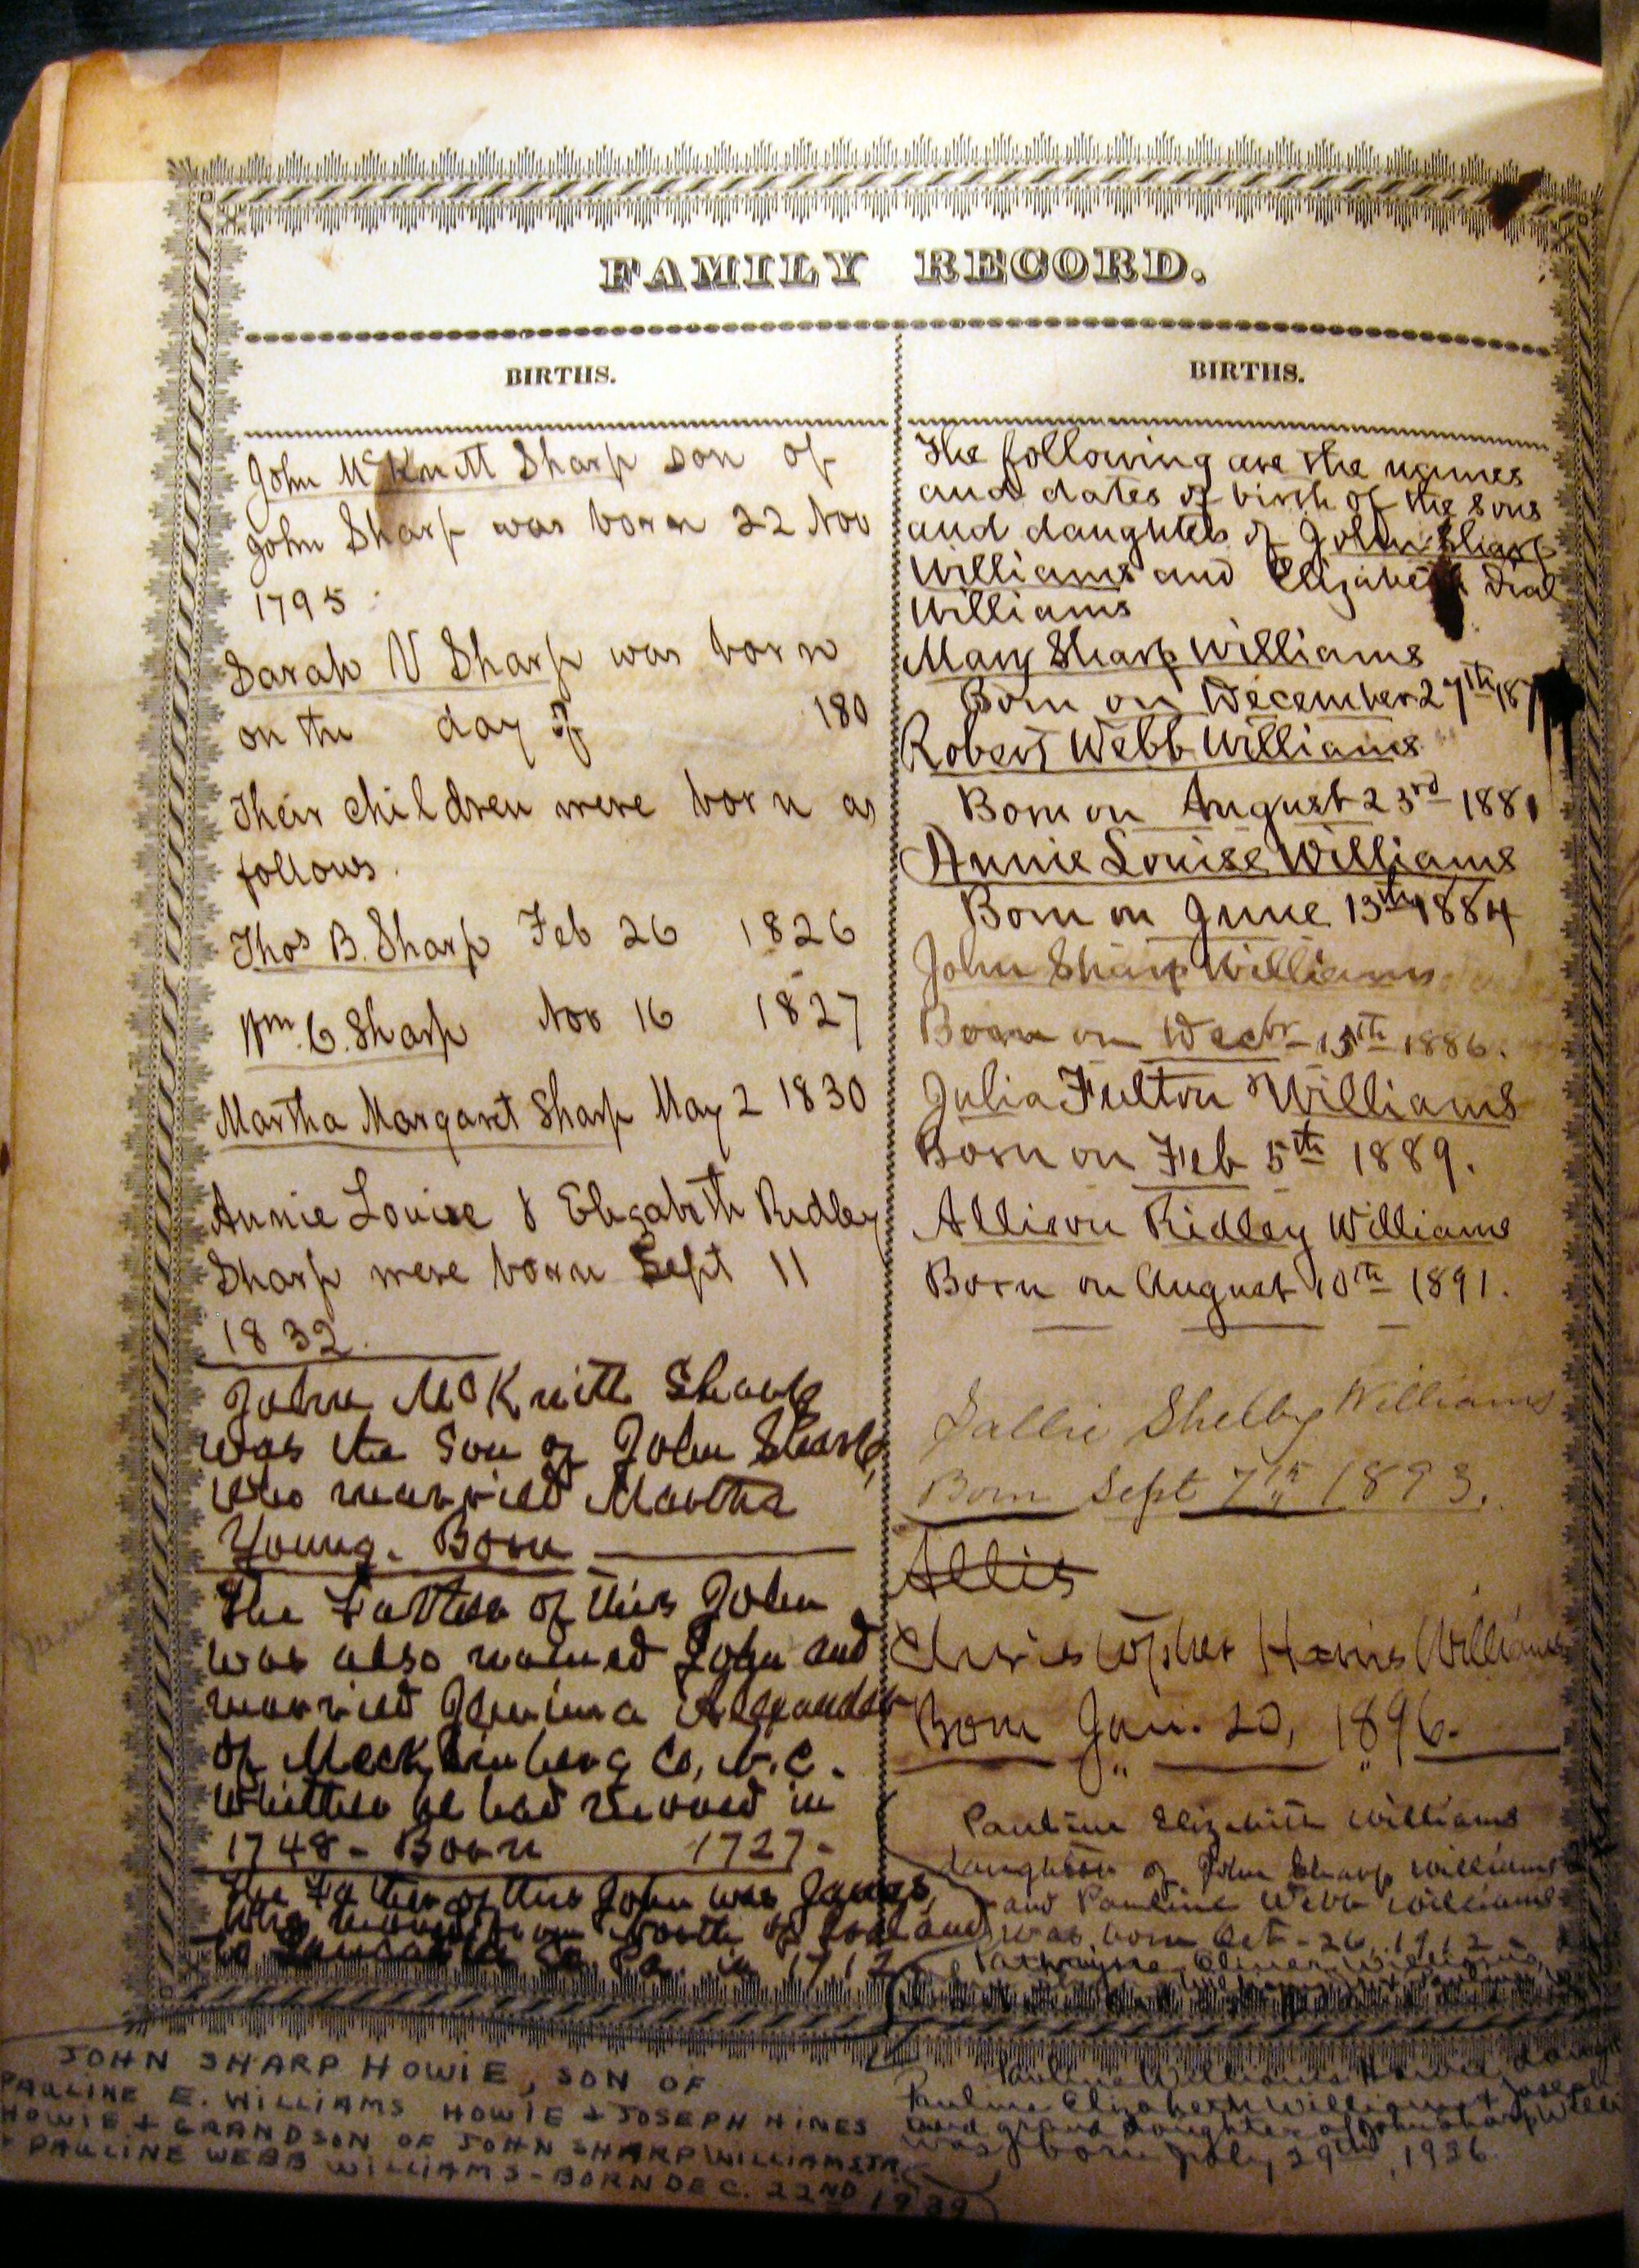 FAMILY RECORD.
BIRTHS.
John McKnitt Sharp son of
John Sharp was born 22 Nov
1795
Sarah V Sharp was born
on the day of 180
Their children were born as
follows.
Thos B. Sharp Feb 26 1826
Wm. C. Sharp Nov 16 1827
Martha Margaret Sharp May 2 1830
Annie Louise & Elizabeth Ridley
Sharp were born Sept 11
1832.
John McKnitt Sharp
was the Son of John Sharp,
who married Martha
Young. Born
The Father of this John
was also named John and
married Jemima Alexander
of Mecklenberg Co, N.C.
Whither he had moved in
1748 - Born 1727 -
The Father of this John was James,
who moved from North of Ireland
to Lancaster Co. Pa. in 1712
BIRTHS.
The following are the names
and dates of birth of the sons
and daughters of John Sharp
Williams and Elizabeth Dial
Williams
Mary Sharp Williams
Born on December 27th 187
Robert Webb Williams
Born on August 23rd 1881
Annie Louise Williams
Born on June 13th 1884
John Sharp Williams
Born on Decbr 15th 1886.
Julia Fulton Williams
Born on Feb 5th 1889.
Allison Ridley Williams
Born on August 10th 1891.
Sallie Shelby Williams
Born Sept 7th 1893.
Allis
Christopher Harris Williams
Born Jan. 20, 1896.
Pauline Elizabeth Williams
daughter of John Sharp Williams
and Pauline Webb Williams
was born Oct - 26, 1912 -
JOHN SHARP HOWIE, SON OF
PAULINE E. WILLIAMS HOWIE + JOSEPH HINES
HOWIE + GRANDSON OF JOHN SHARP WILLIAMS JR.
+ PAULINE WEBB WILLIAMS - BORN DEC. 22ND 1939
Pauline Williams Howie, daugh
Pauline Elizabeth Williams + Joseph
and grand daughter of John Sharp Willi
was born July 29th, 1936.